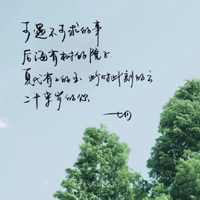 可遇不可求的事
后海有树的院子
夏代有工的玉 此时此刻的云
二十来岁的你